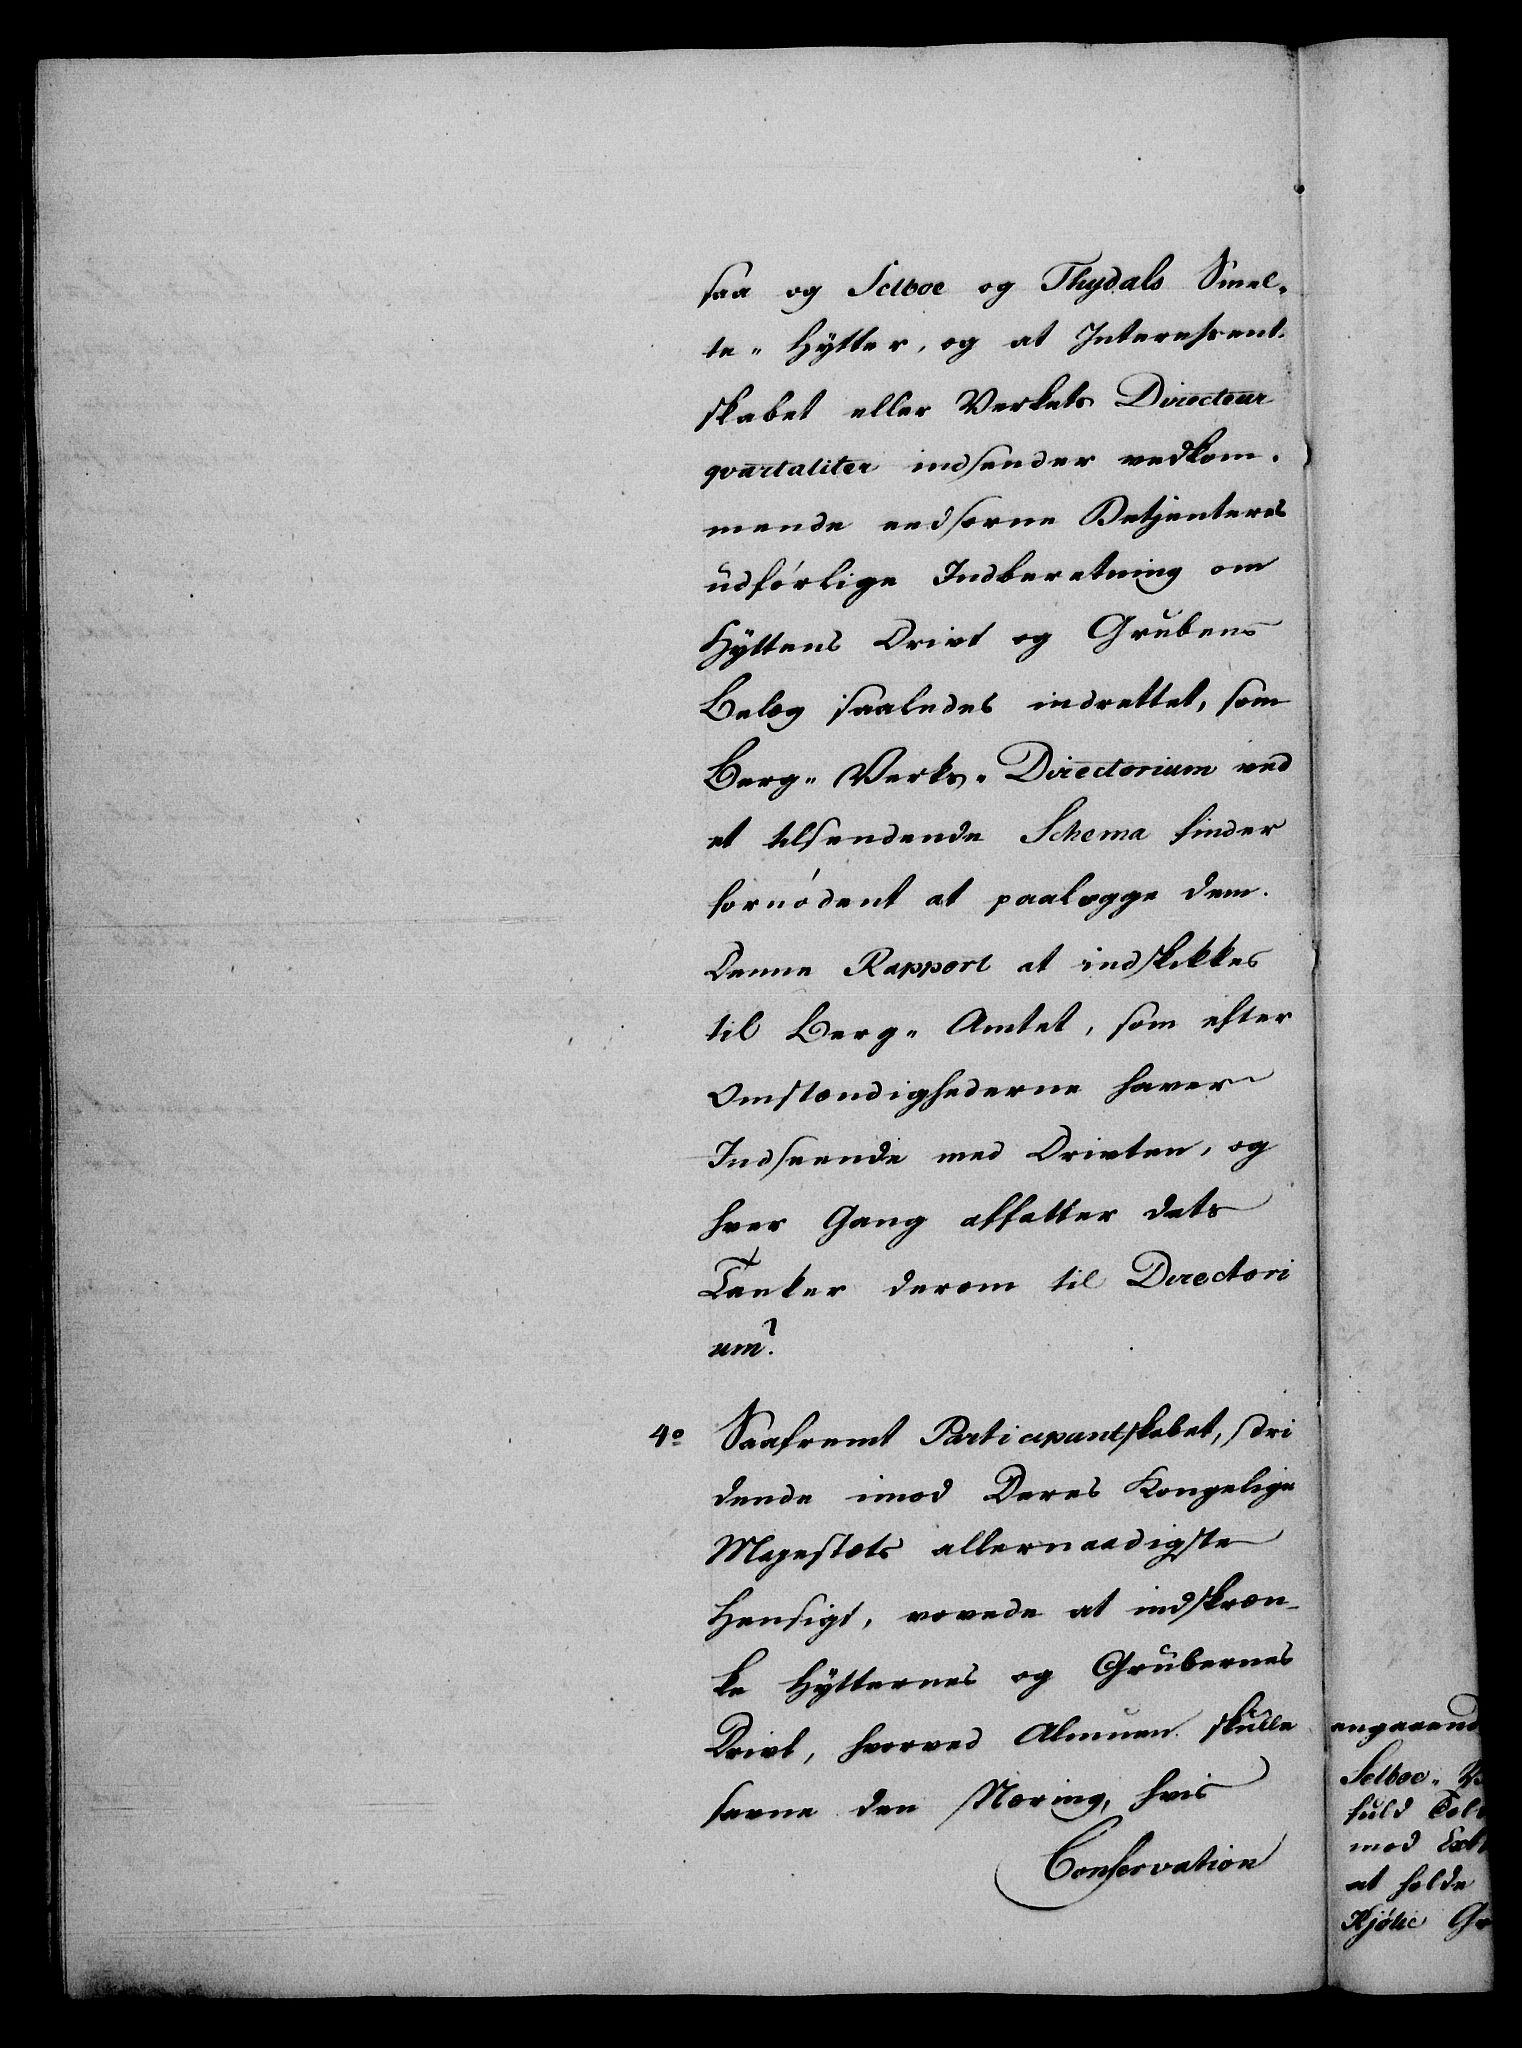 saa og Selboe og Thydals Smel-
te-Hytter, og at Interessent-
skabet eller Verkets Directeur
qvartaliter indsender vedkom-
mende eedsorne Betjenteres
udførlige Indberetning om
Hyttens Drivt og Grubens
Belæg saaledes indrettet, som
Berg-Verks-Directorium ved
et tilsendende Schema finder
fornødent at paalægge dem.
Denne Rapport at indskikkes
til Berg-Amtet, som efter
Omstændighederne haver
Indseende med Drivten, og
hver Gang affatter dets
Tanker derom til Directori
um?
4o Saafremt Participantskabet, stri
dende imod Deres Kongelige
Majestæts allernaadigste
Hensigt, vovede at indskræn-
ke Hytternes og Grubernes
Drivt, hvorved Almuen skulle
savne den Næring, hvis
Conservation
angaaend
Selboe-
fuld Told
mod
at holde
Kjølie Gr